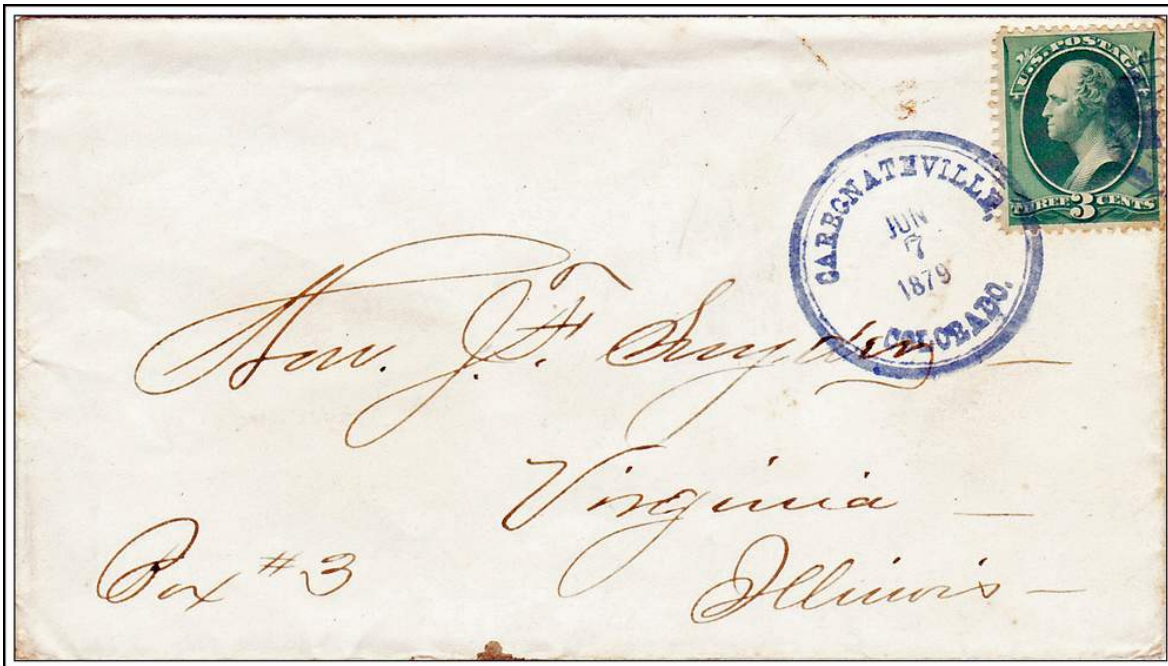 U.S. POSTAGE
THREE 3 CENTS
CARBONATEVILLE,
JUN
7
1879
COLORADO.
Hon. J. F. Snyder
Virginia
Illinois
Box #3